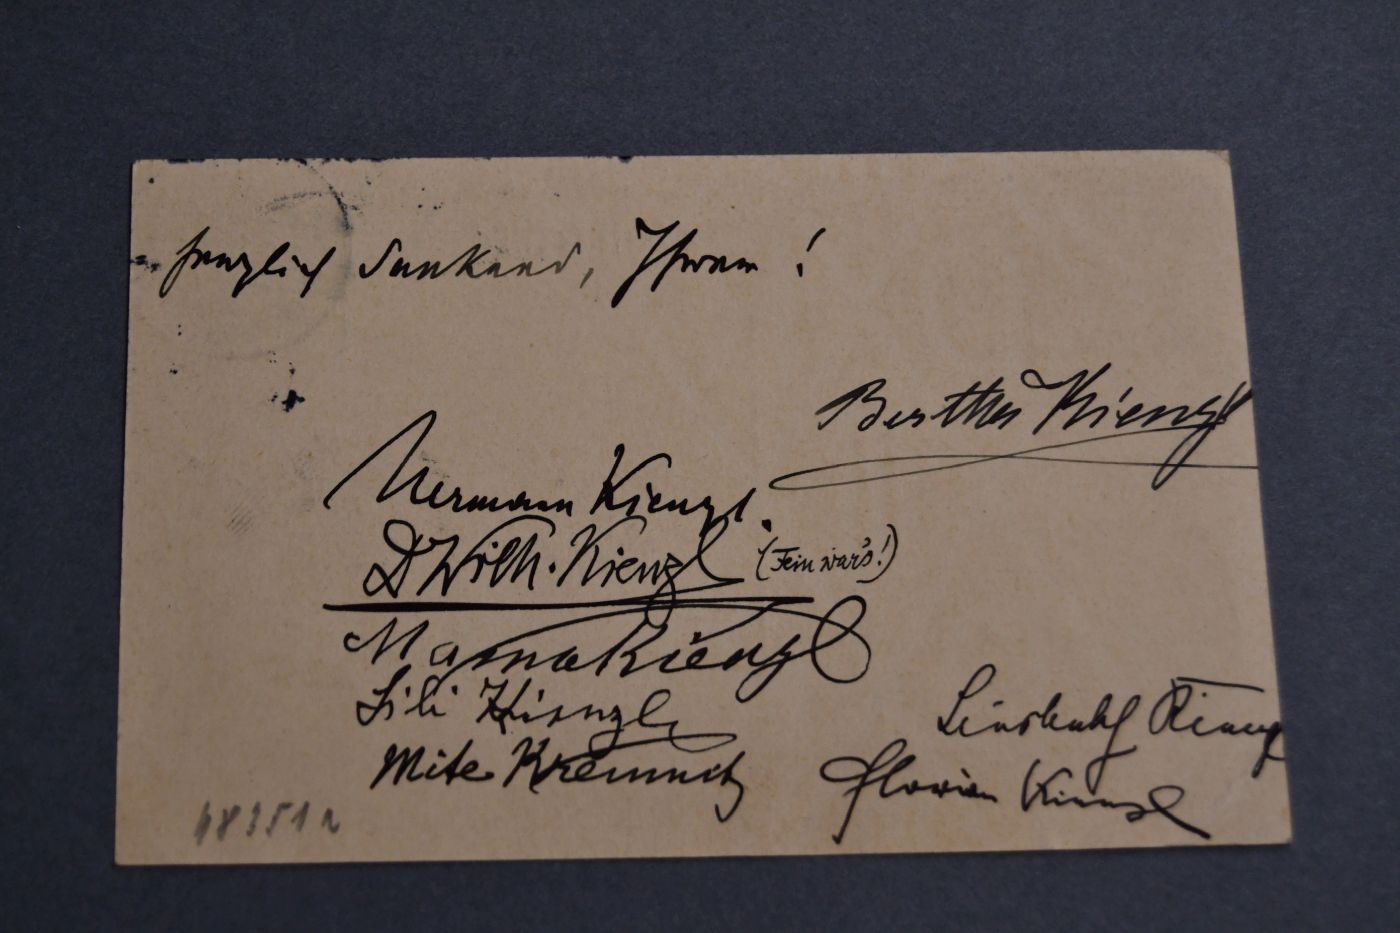 herzlich dankend, Ihrem!
Bertha Kienzl
Hermann Kienzl.
Dr Wilh. Kienzl (Fein war's!)
Mama Kienzl
Lili Kienzl
Kienzl
Mite Kremnitz
Florian Kienzl
48351a